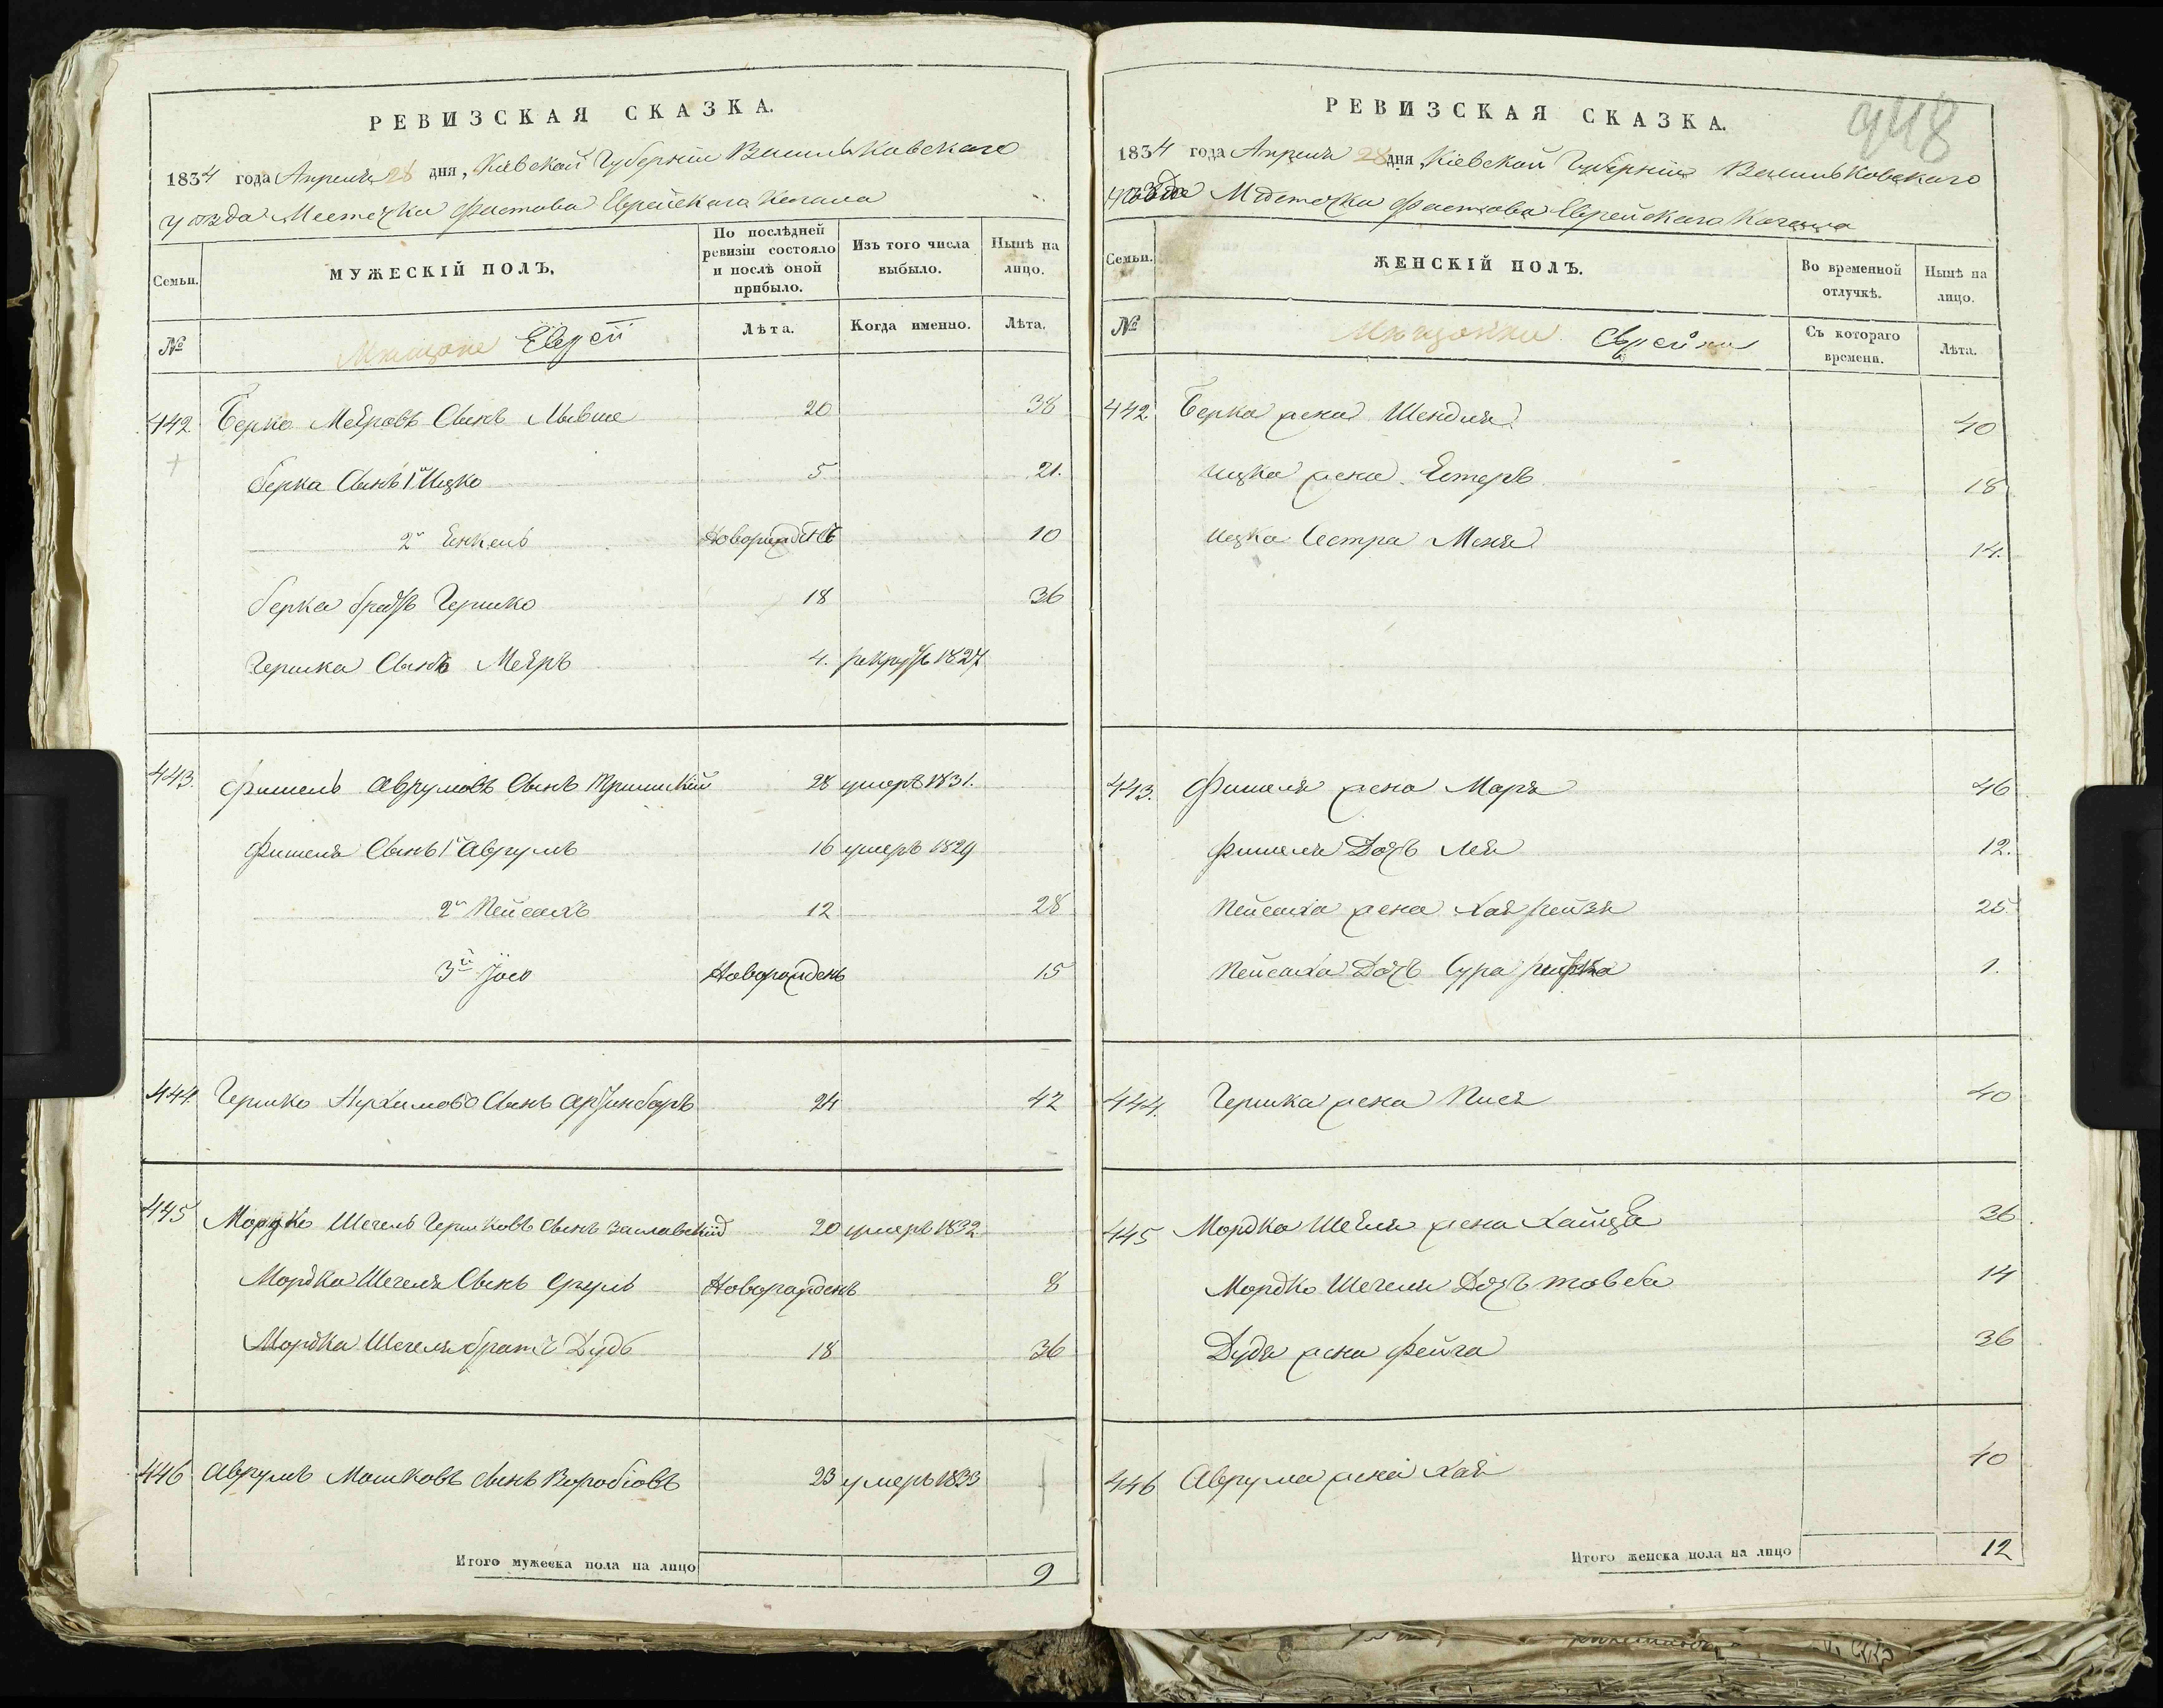 РЕВИЗСКАЯ СКАЗКА.
1834 года Апреля 28 дня, Кіевской Губерніи Васильковского
уѣзда Местечка Фастова Еврейскага Кагала
Семьи. МУЖЕСКІЙ ПОЛЪ. По послѣдней ревизіи состояло и послѣ оной прибыло. Изъ того числа выбыло. Нынѣ на лицо.
№ Мѣщане Евреи Лѣта. Когда именно. Лѣта.
442 Берко Меяровъ Сынъ 20 38
Берка Сынъ 1й Ицко 5 21.
2й Енкель Новорожденъ 10
Берка братъ Гершко 18 36
Гершка Сынъ Меяръ 4. рекрутъ 1827
443. Фишель Аврумовъ Сынъ 28 умеръ 1831.
Фишеля Сынъ 1й Аврумъ 16 умеръ 1829
2й Пейсахъ 12 28
3й Іось Новорожденъ 15
444. Гершко Нухимовъ Сынъ 24 42
445 Мордко Шегель Гершковъ Сынъ Заславскій 20 умеръ 1832
Мордка Шегеля Сынъ Сруль Новорожденъ 8
Мордка Шегеля братъ Дудь 18 36
446 Аврумъ Мошковъ Сынъ Воробіовъ 23 умеръ 1833
Итого мужеска пола на лицо 9
948
РЕВИЗСКАЯ СКАЗКА.
1834 года Апреля 28 дня, Кіевской Губерніи Васильковскаго
уѣзда Мѣстечка Фастова Еврейскаго Кагала
Семьи. ЖЕНСКІЙ ПОЛЪ. Во временной отлучкѣ. Нынѣ на лицо.
№ Мѣщанки Еврейки Съ котораго времени. Лѣта.
442 Берка жена Шендля 40
Ицка жена Естеръ 18
Ицка Сестра Меня 14.
443. Фишеля жена Маря 46
Фишеля Дочь Лея 12.
Пейсаха жена Хая рейзя 25.
Пейсаха Дочь Сура 1.
444. Гершка жена Пися 40
445 Мордка жена 36.
Мордко Шегеля Дочь товба 14
Дудя жена Фейга 36
446 Аврума жена Хая 40
Итого женска пола на лицо 12